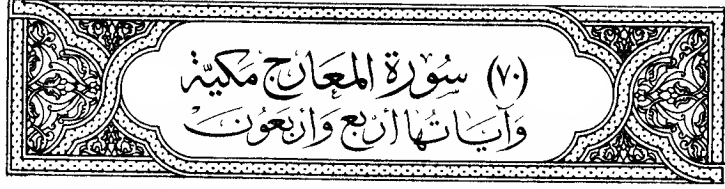 (٧٠) سُورَة المعَارج مَكيَّة
وَآيَاتُهَا أَرْبَع وَأَرْبَعُونَ